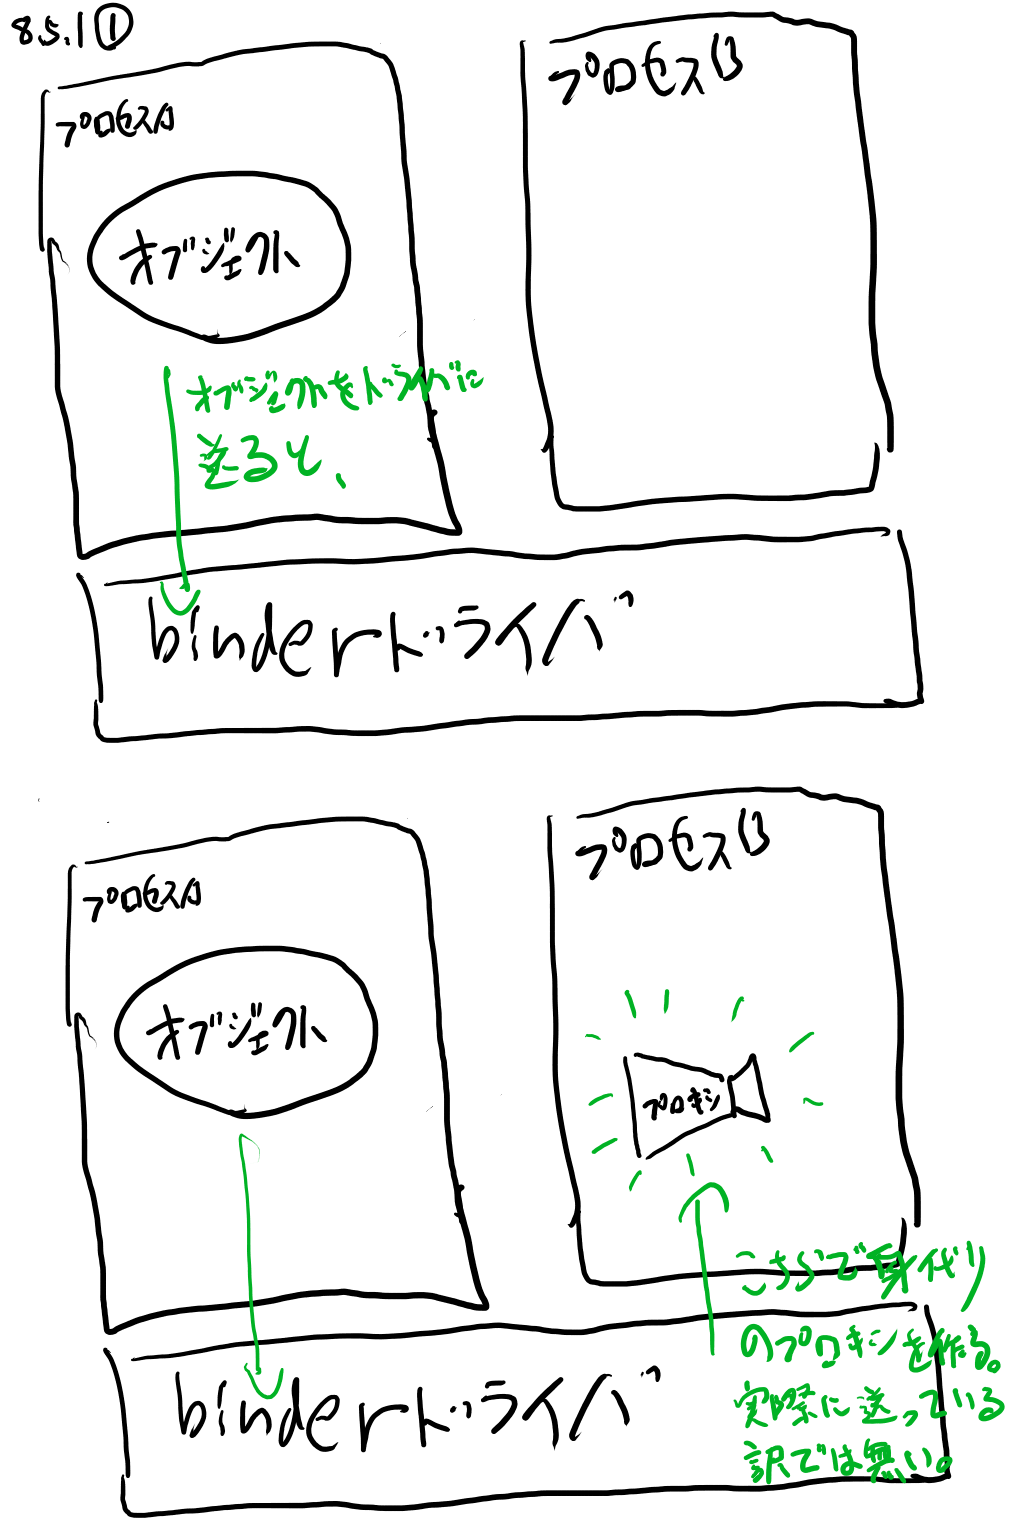 8.5.1①
プロセスA
プロセスB
オブジェクト
オブジェクトをドライバに
送ると、
binderドライバ
プロセスA
プロセスB
オブジェクト
プロキシ
こちらで身代り
のプロキシを作る。
実際に送っている
訳では無い。
binderドライバ